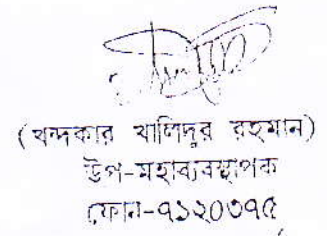 (খন্দকার খালিদুর রহমান)
উপ-মহাব্যবস্থাপক
ফোন-৭১২০৩৭৫